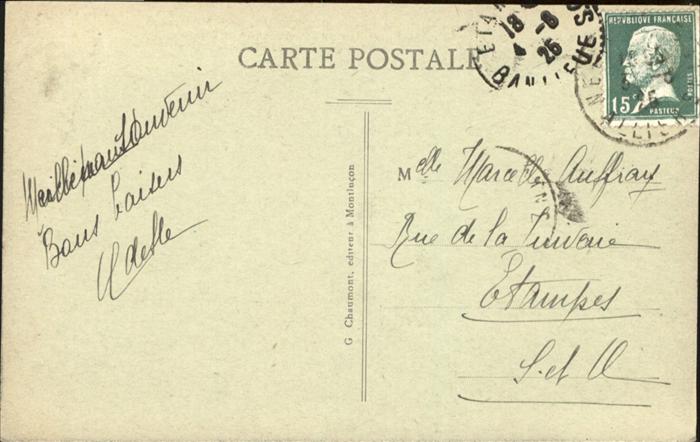 CARTE POSTALE
ETAM
18
8
26
BANLIEUE
REPUBLIQUE FRANÇAISE
POSTES
15c
PASTEUR
NE
ALLIER
Meilleur Souvenir
Bons baisers
Odette
G Chaumont, editeur à Montluçon
Melle Marcelle Auffray
Rue de la
Etampes
S. et O